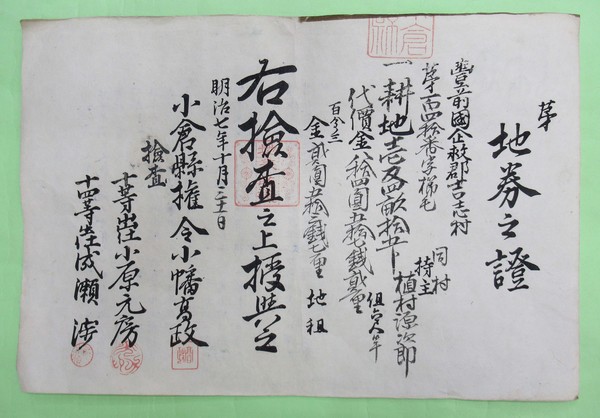 地券之證
第
豊前國企救郡吉志村
第百四拾番字梯毛
同村
持主 植村源次郎
一耕地壱反四畝拾五卜
代價金八拾四圓五拾七銭貳厘
百分ノ三
金貳圓五拾三銭七厘 地租
右撿査之上授與之
明治七年十月三十一日
小倉縣權令小幡高政
撿査
十等出仕小原元房
十四等出仕成瀬渉